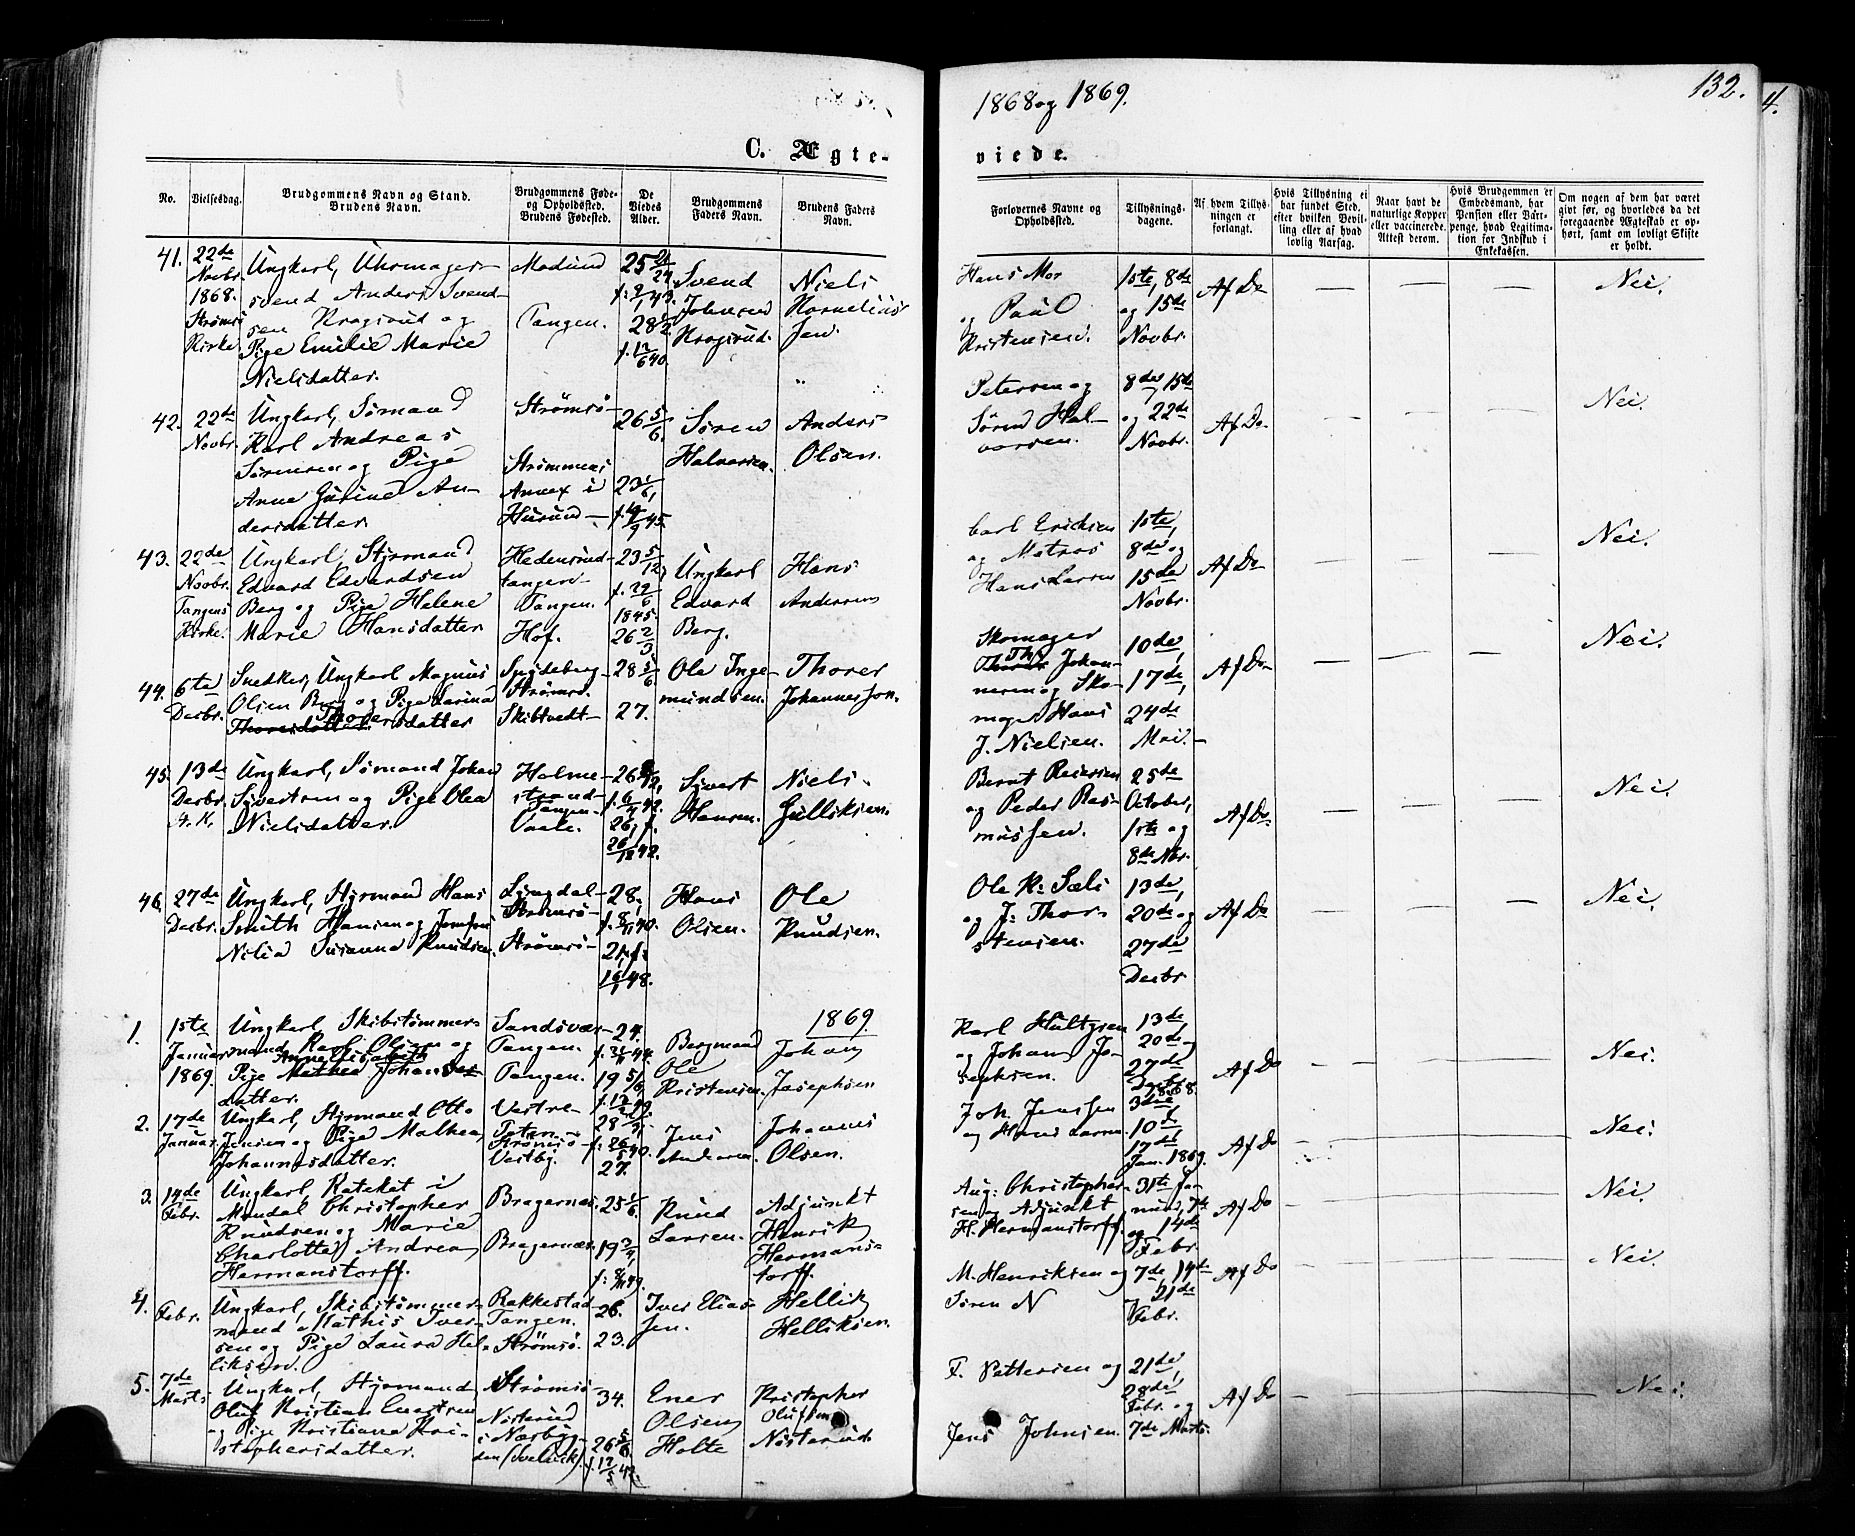 1868 og 1869.
132.
4.
C. Ægte-
viede.
No.
Vielsesdag.
Brudgommens Navn og Stand.
Brudens Navn.
Brudgommens Føde-
og Opholdsted.
Brudens Fødested.
De
Viedes
Alder.
Brudgommens
Faders Navn.
Brudens Faders
Navn.
Forlovernes Navne og
Opholdssted.
Tillysnings-
dagene.
Af hvem Tillys-
ningen er
forlangt.
Hvis Tillysning ei
har fundet Sted,
efter hvilken Bevil-
ling eller af hvad
lovlig Aarsag.
Naar havt de
naturlige Kopper
eller vaccinerede.
Attest derom.
Hvis Brudgommen er
Embedsmand, har
Pension eller Vart-
penge, hvad Legitima-
tion for Indskud i
Enkekassen.
Om nogen af dem har været
givt før, og hvorledes da det
foregaaende Ægteskab er op-
hørt, samt om lovligt Skifte
er holdt.
41.
22de
Novbr.
1868.
Strömsö
Kirke.
Ungkarl, Uhrmager-
svend Anders Svend-
sen Kragsrud og
Pige Emilie Marie
Nielsdatter.
Modum
Tangen.
25
28
Svend
Johnsen
Kragsrud.
Niels
Kornelius-
sen
Hans Moe
og Paul
Kristensen.
1ste, 8de
og 15de
Novbr.
Af Do
Nei.
42.
22de
Novbr.
Ungkarl, Sömand
Karl Andreas
Sörensen og Pige
Anne Gurine An-
dersdatter.
Strömsö-
Strömmens
Annex i
Hurum-
26 5/6.
23
Sören
Halvorsen.
Anders
Olsen.
Petersen og
Sören Hal-
vorsen.
8de, 15de
og 22de
Novbr.
Af Do.
Nei.
43.
22de
Novbr.
Tangens
Kirke.
Ungkarl, Styrmand
Edvard Edvardsen
Berg og Pige Helene
Marie Hansdatter
Hedensrud-
tangen-
Tangen.
Hof.
23 5/12
f. 29/6
1845.
26 2/3
Ungkarl
Edvard
Berg.
Hans
Andersen
Carl Ericksen
og Matros
Hans Larsen
1ste,
8de og
15de
Novbr.
Af Do
Nei.
44.
6te
Decbr.
Snedker, Ungkarl Magnus
Olsen Berg og Pige Larine
Thorersdatter
Spydeberg-
Strömsö.
Skibtvedt-
28
27.
Ole Inge-
mundsen.
Thorer
Johannesson.
Skomager
Johan-
nesen og Sko-
mager Hans
J. Nielsen.
10de,
17de,
24de
Mai.
Af Do
Nei.
45.
13de
Decbr.
Ungkarl, Sömand Johan
Sivertsen og Pige Olea
Nielsdatter.
Holme-
strand-
Tangen-
Vaale.
26
26, f.
26/12 42.
Sivert
Hansen.
Niels
Gulliksen.
Bernt
og Peder Ras-
mussen.
25de
October,
1ste og
8de Nbr.
Af Do.
Nei.
46.
27de
Decbr.
Ungkarl, Styrmand Hans
Smith Hansen og Jomfru
Nilia Susanna Knudsen.
Lyngdal-
Strömsö-
Strömsö-
28,
21, f.
Hans
Olsen.
Ole
Knudsen.
Ole K: Sæli
og J: Thor-
stensen.
13de,
20de og
27de
Decbr
Af Do
Nei.
1869
1.
1ste
Januar
1869.
Ungkarl, Skibstömmer-
mand Karl Olsen og
Pige Johannes-
datter.
Sandsvær-
Tangen.
Tangen.
24.
19 5/6
Bergmand
Ole
Kristensen.
Johan
Josephsen
Karl Hultgren
og Johan Jo-
sephsen.
13de
20de og
27de
Decbr
1868.
Af Do
Nei.
2.
17de
Januar
Ungkarl, Styrmand Otto
Jensen og Pige Mathea
Johannesdatter.
Vestre-
Toten-
Strömsö
Vestby.
28
27.
Jens
Andersen.
Johannes
Olsen.
Joh. Jenssen
og Hans Larsen
3die
10de
17de
Jan. 1869.
Af Do
Nei.
3.
14de
Febr.
Ungkarl, Kateket i
Mandal Christopher
Knudsen og Marie
Charlotte Andrea
Hermanstorff.
Bragernæs.
Bragernæs.
25
19
Knud
Larsen.
Adjunkt
Henrik
Hermans-
torff.
Aug: Christopher-
sen og Adjunkt
H. Hermanstorff.
31te Ja-
nuar, 7de
og 14de
Febr.
Af Do
Nei.
4.
Febr.
Ungkarl, Skibstömmer-
mand Mathis Iver-
sen og Pige Laura Hel-
liksen.
Rakkestad-
Tangen.
Strömsö.
26.
23.
Iver Elias-
sen.
Hellik
Helliksen.
M. Henriksen og
Sören N
7de, 14de
og 21de
Febr.
Af Do
Nei.
5.
7de
Marts
Ungkarl, Styrmand
Oluf Kristian Enersen
og Pige Kristiane Kri-
stophersdatter.
Strömsö-
Nösterud
i Næsbyg-
den (Svelvik).
34.
26 5/6
Ener
Olsen
Holte
Kristopher
Olufsen
Nösterud
F. Pettersen og
Jens Johnsen.
21de,
28de
Febr. og
7de Marts.
Af Do
Nei.